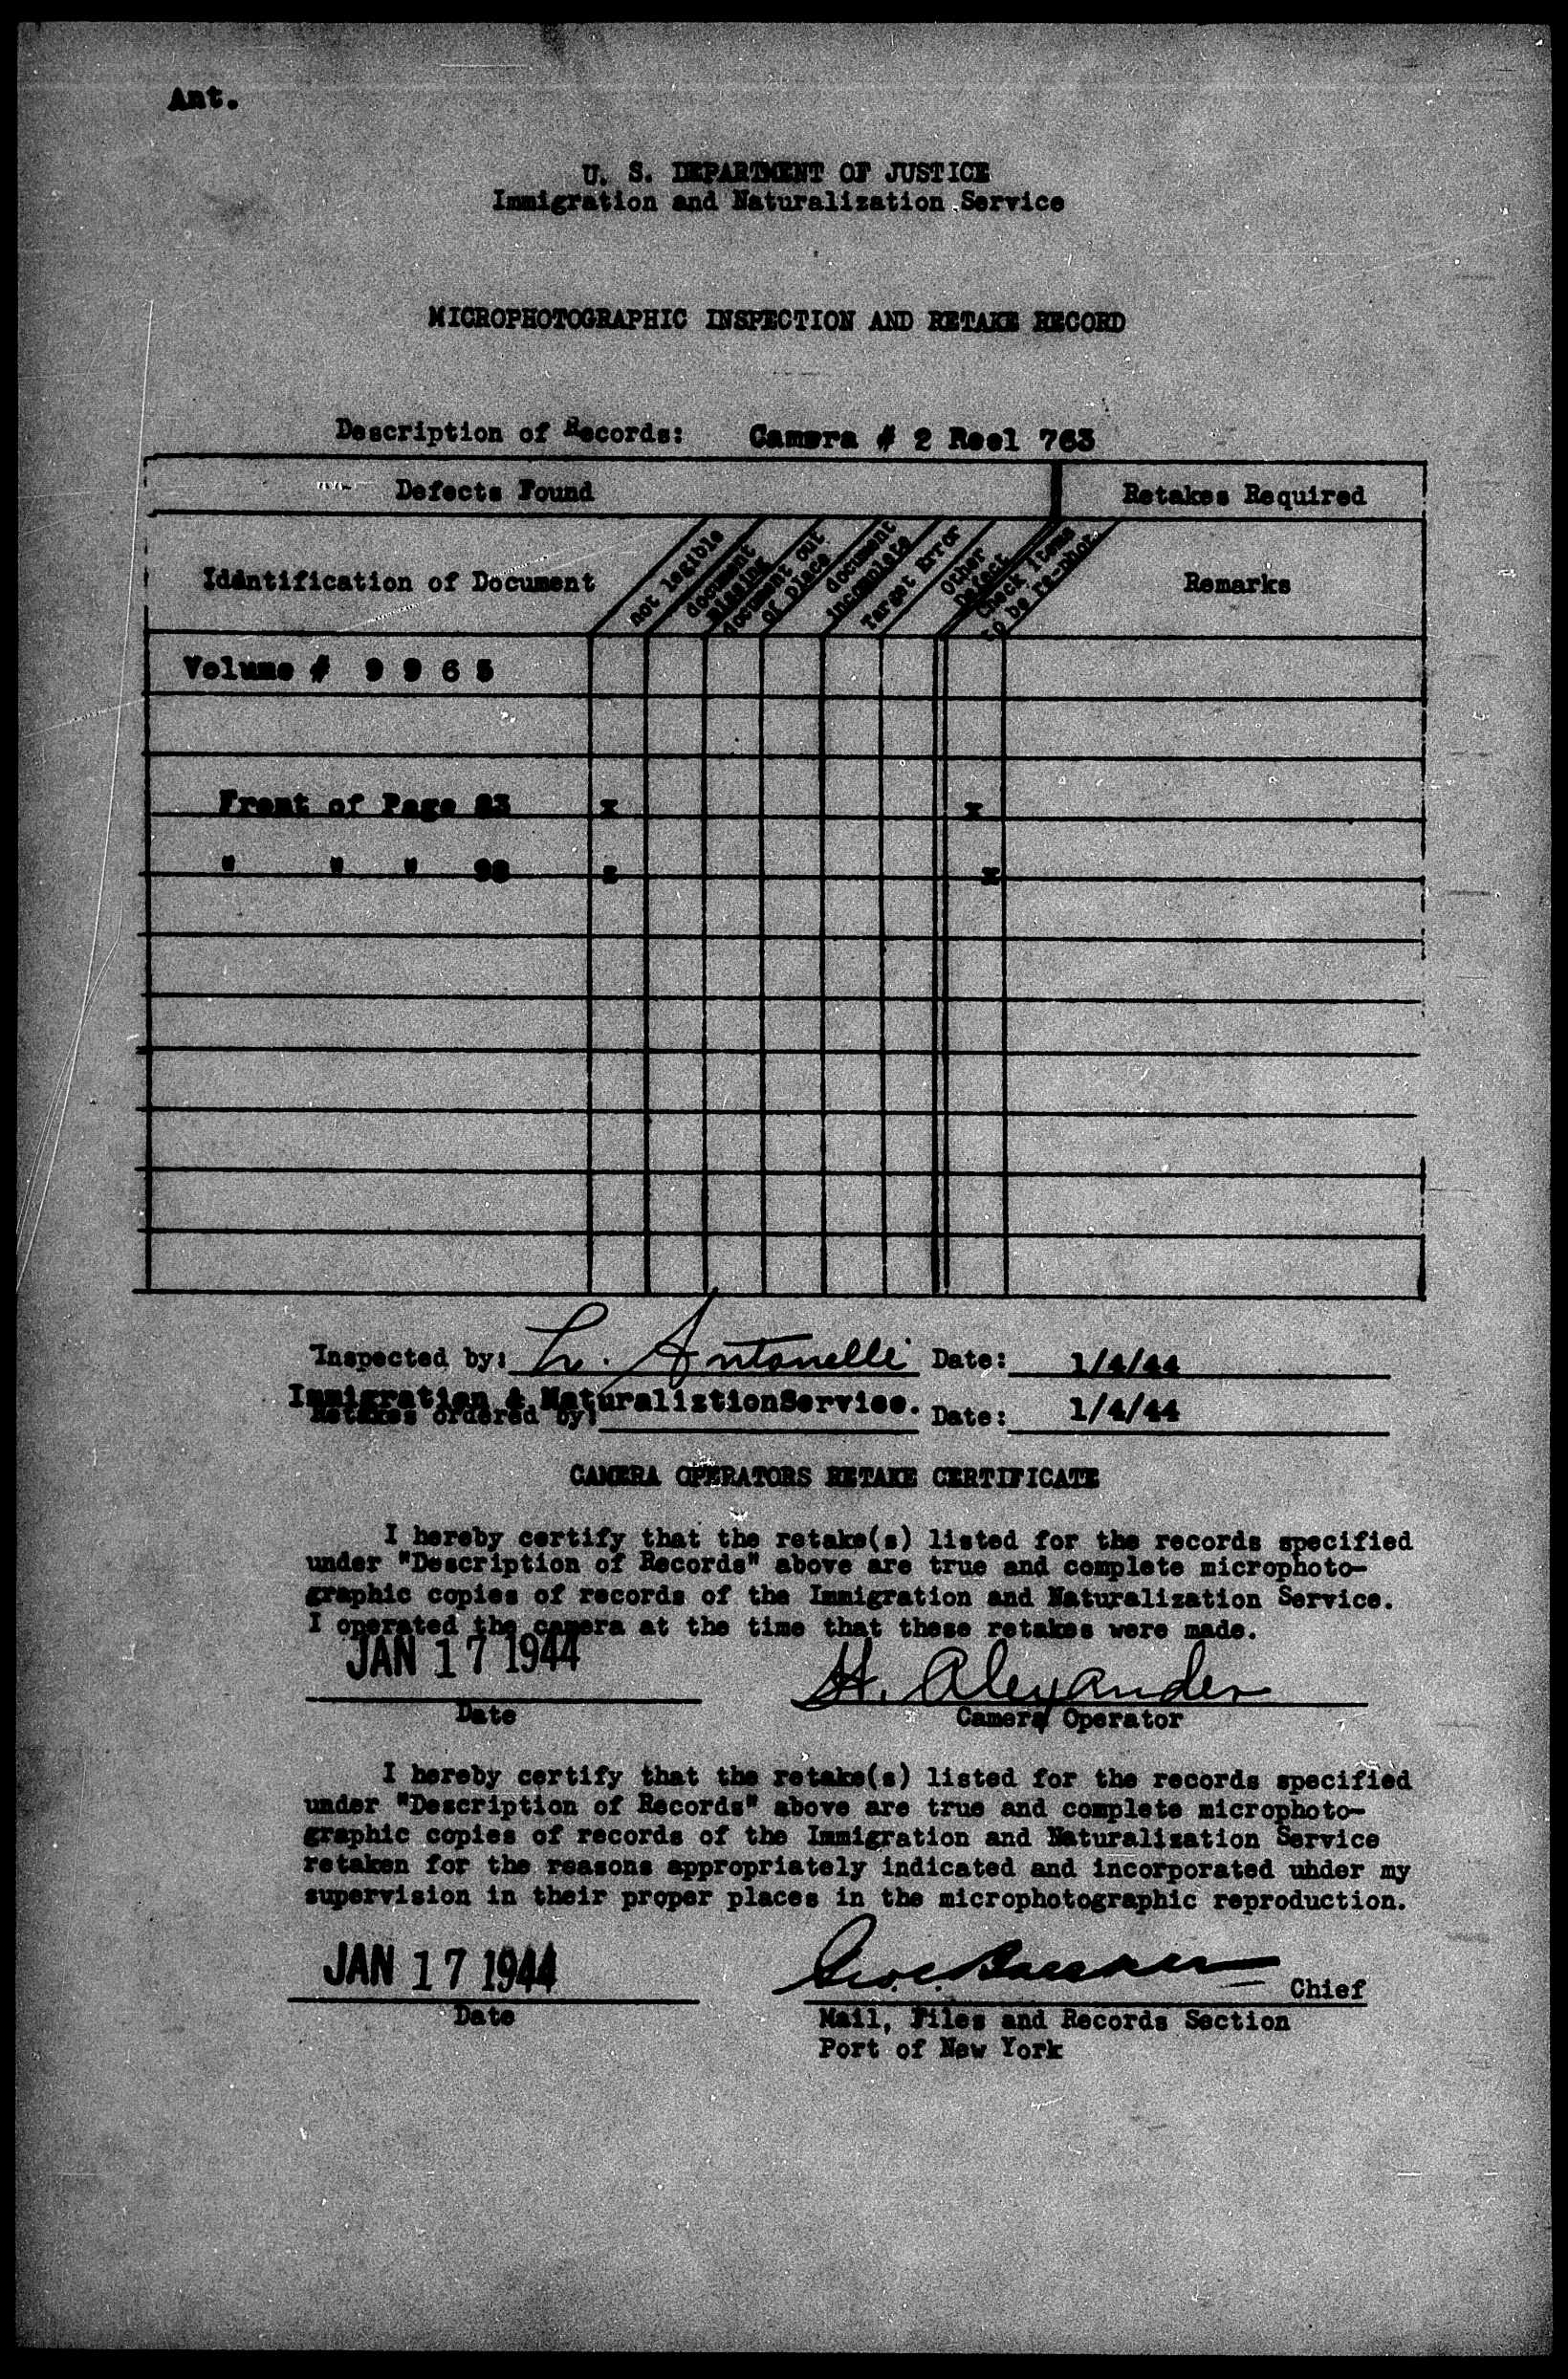 Ant.
U. S. DEPARTMENT OF JUSTICE
Immigration and Naturalization Service
MICROPHOTOGRAPHIC INSPECTION AND RETAKE RECORD
Description of Records: Camera # 2 Reel 763
Defects Found Retakes Required
Identification of Document
not legible
document
missing
document out
of place
document
incomplete
Target Error
Other
Defect
Check items
to be re-shot
Remarks
Volume # 9 9 6 5
Front of Page x x
" " " 98 x x
Inspected by: L. Antonelli Date: 1/4/44
Immigration & NaturaliztionService.
Retakes ordered by: Date: 1/4/44
CAMERA OPERATORS RETAKE CERTIFICATE
I hereby certify that the retake(s) listed for the records specified
under "Description of Records" above are true and complete microphoto-
graphic copies of records of the Immigration and Naturalization Service.
I operated the camera at the time that these retakes were made.
JAN 17 1944 H. Alexander
Date Camera Operator
I hereby certify that the retake(s) listed for the records specified
under "Description of Records" above are true and complete microphoto-
graphic copies of records of the Immigration and Naturalization Service
retaken for the reasons appropriately indicated and incorporated under my
supervision in their proper places in the microphotographic reproduction.
JAN 17 1944 Chief
Date Mail, Files and Records Section
Port of New York